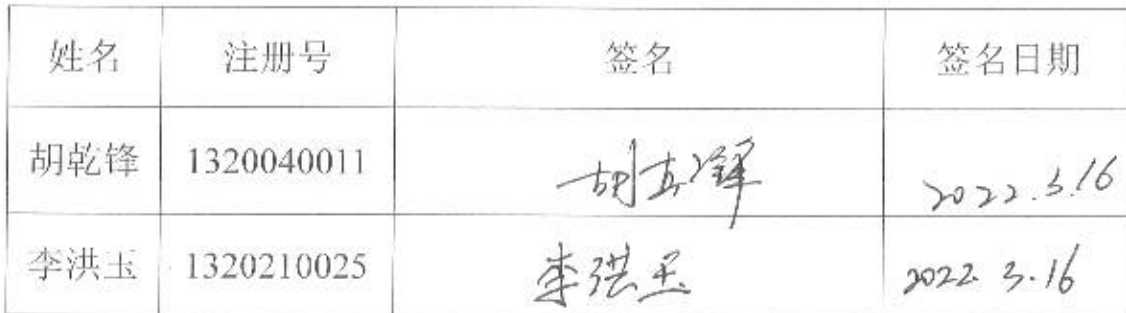 姓名 注册号 签名 签名日期
胡乾锋 1320040011 胡乾锋 2022.3.16
李洪玉 1320210025 李洪玉 2022.3.16